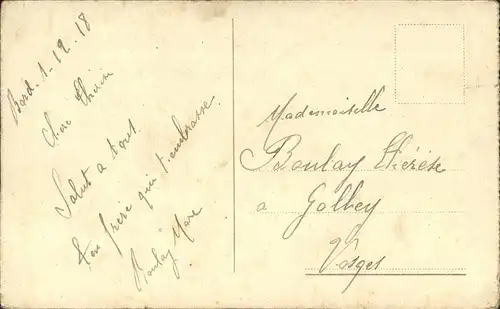 Bord. 1. 12. 18
Salut a tous.
ton frère qui t'embrasse.
Boulay Marc
Mademoiselle
Boulay Thérèse
a Golbey
Vosges